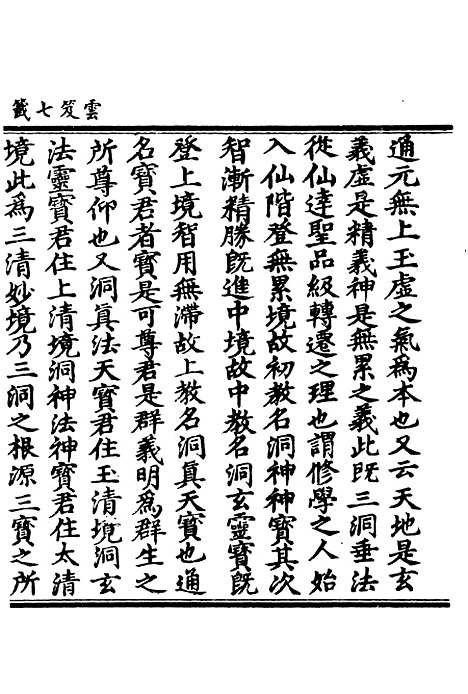 雲笈七籤
通元無上玉虛之氣爲本也又云天地是玄
義虛是精義神是無累之義此旣三洞垂法
從仙達聖品級轉遷之理也謂修學之人始
入仙階登無累境故初教名洞神神寶其次
智漸精勝旣進中境故中教名洞玄靈寶旣
登上境智用無滯故上教名洞眞天寶也通
名寶君者寶是可尊君是群義明爲群生之
所尊仰也又洞眞法天寶君住玉清境洞玄
法靈寶君住上清境洞神法神寶君住太清
境此爲三清妙境乃三洞之根源三寶之所